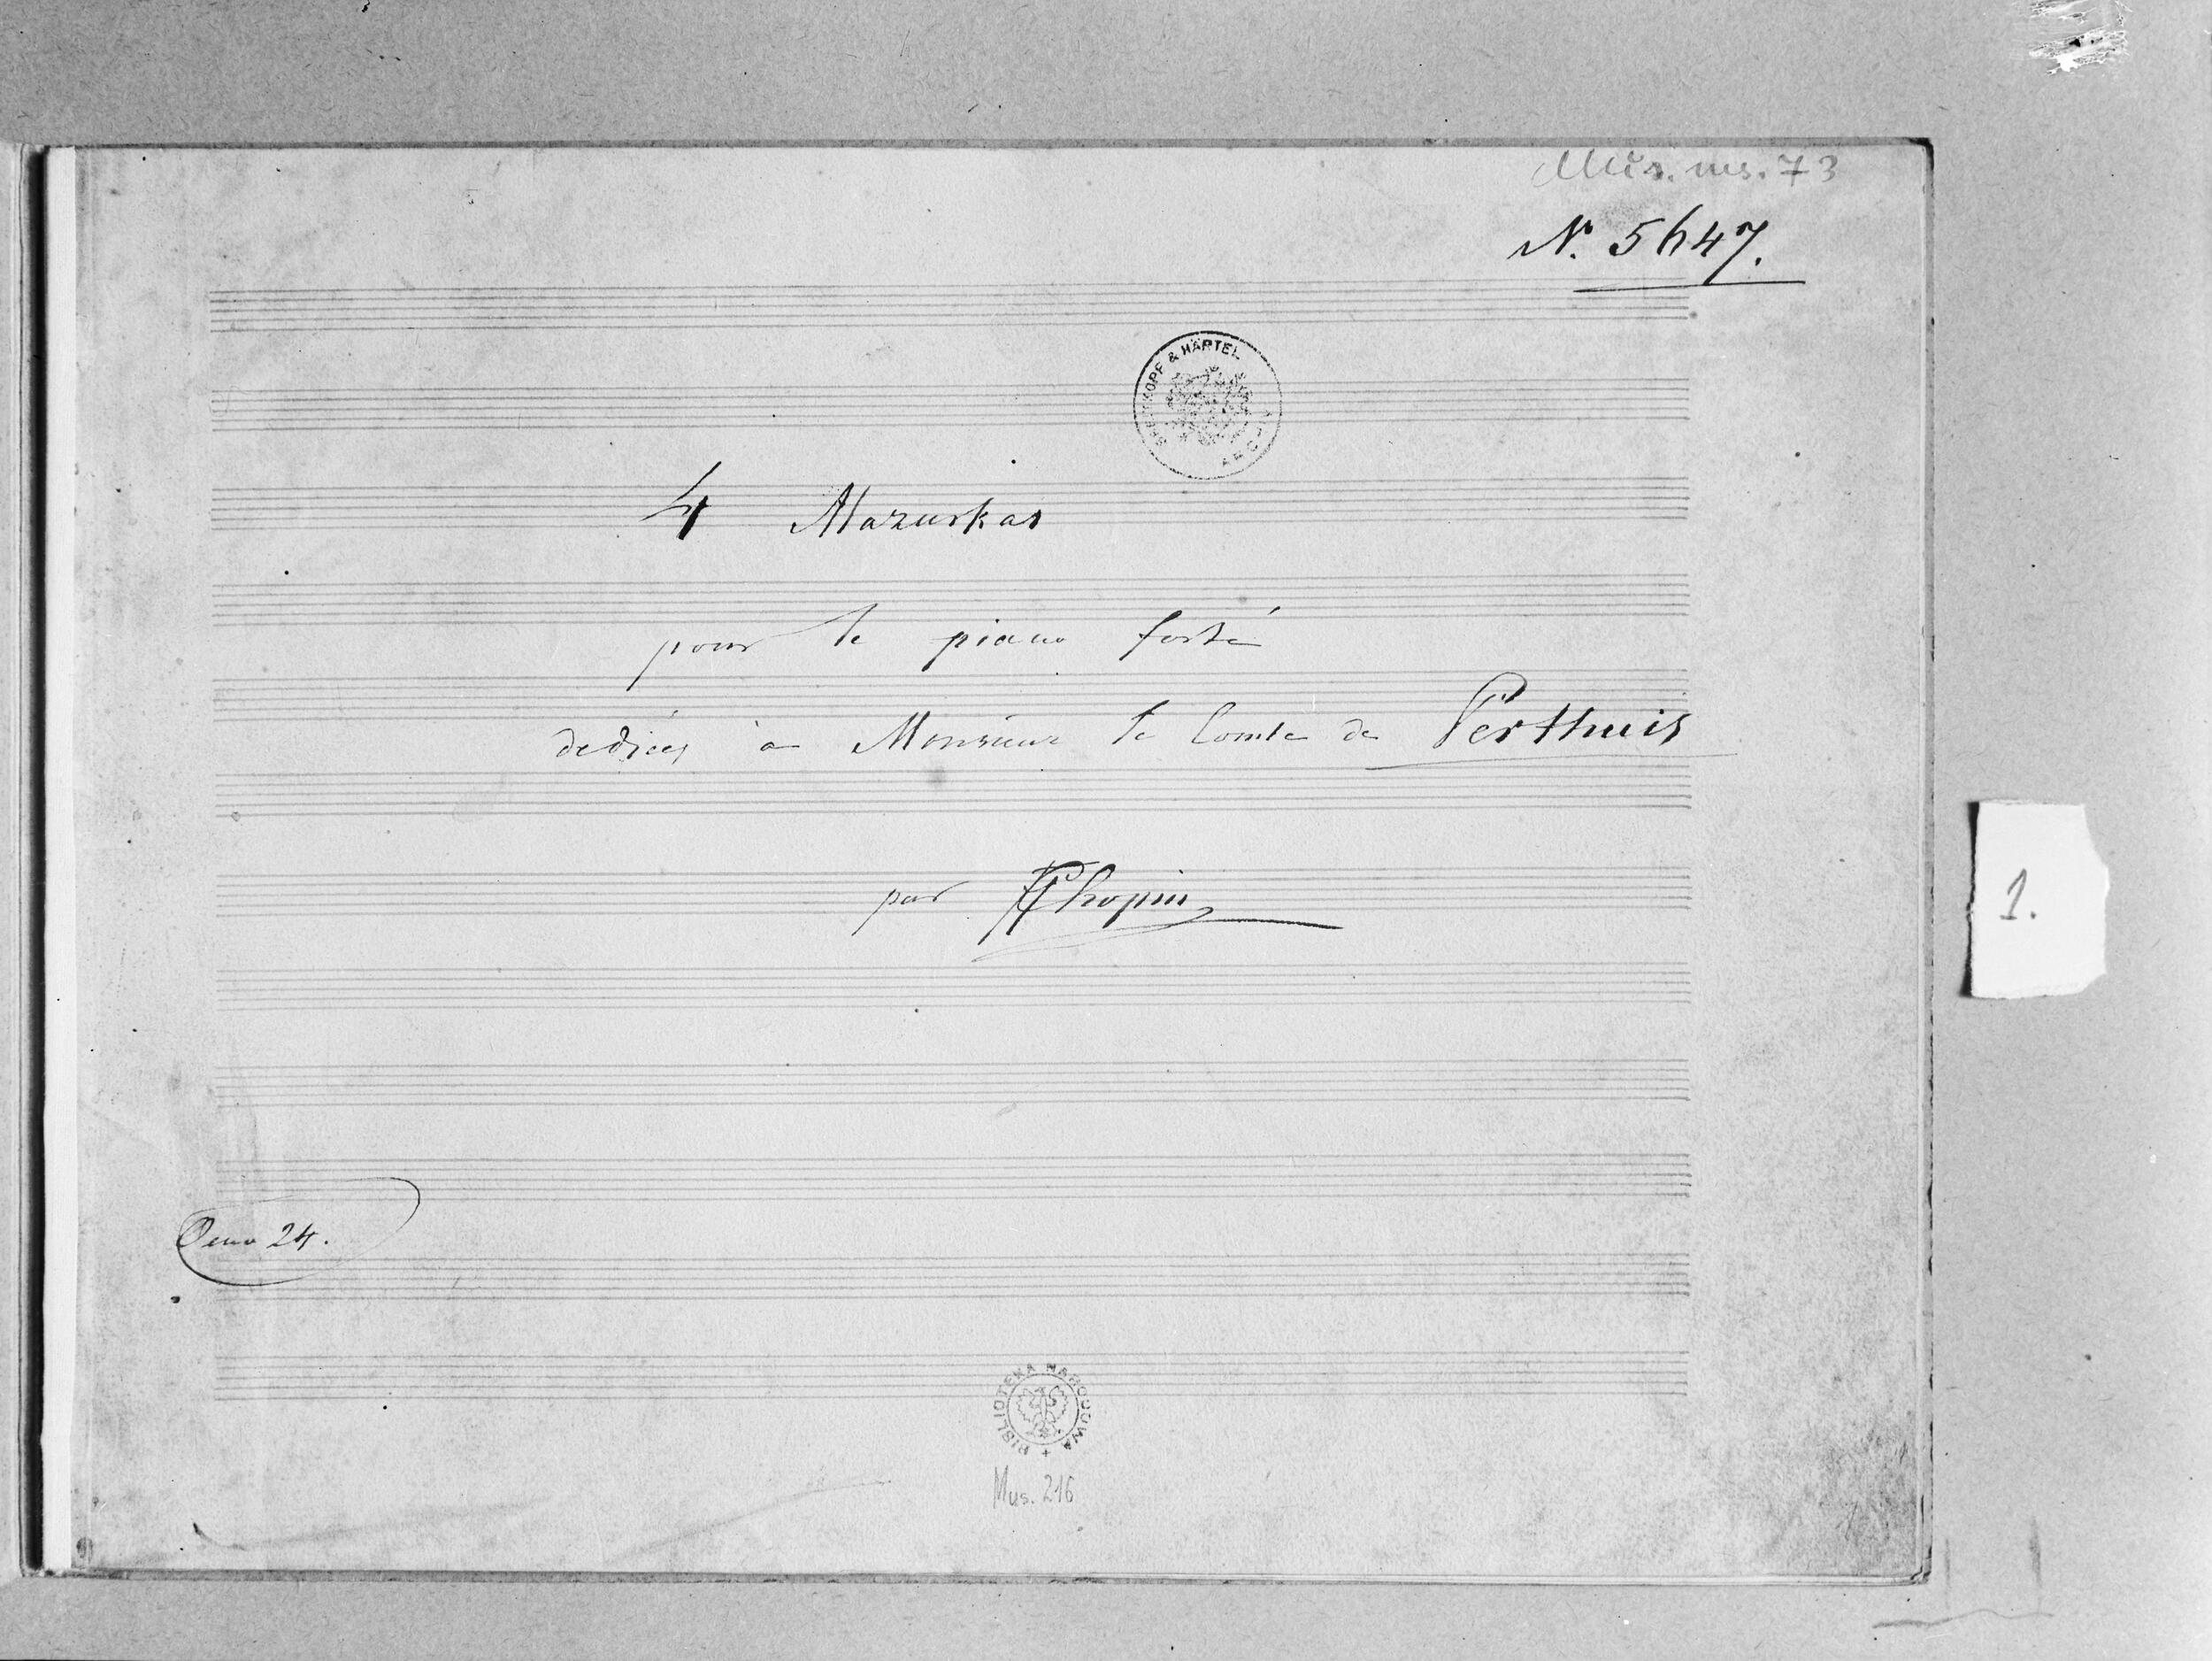 Mus. ms. 73
N. 5647.
BREITKOPF & HÄRTEL
4 Mazurkas
pour le piano forté
dediées à Monsieur le Comte de Perthuis
par FChopin
1.
24.
BIBLIOTEKA NARODOWA +
Mus. 216